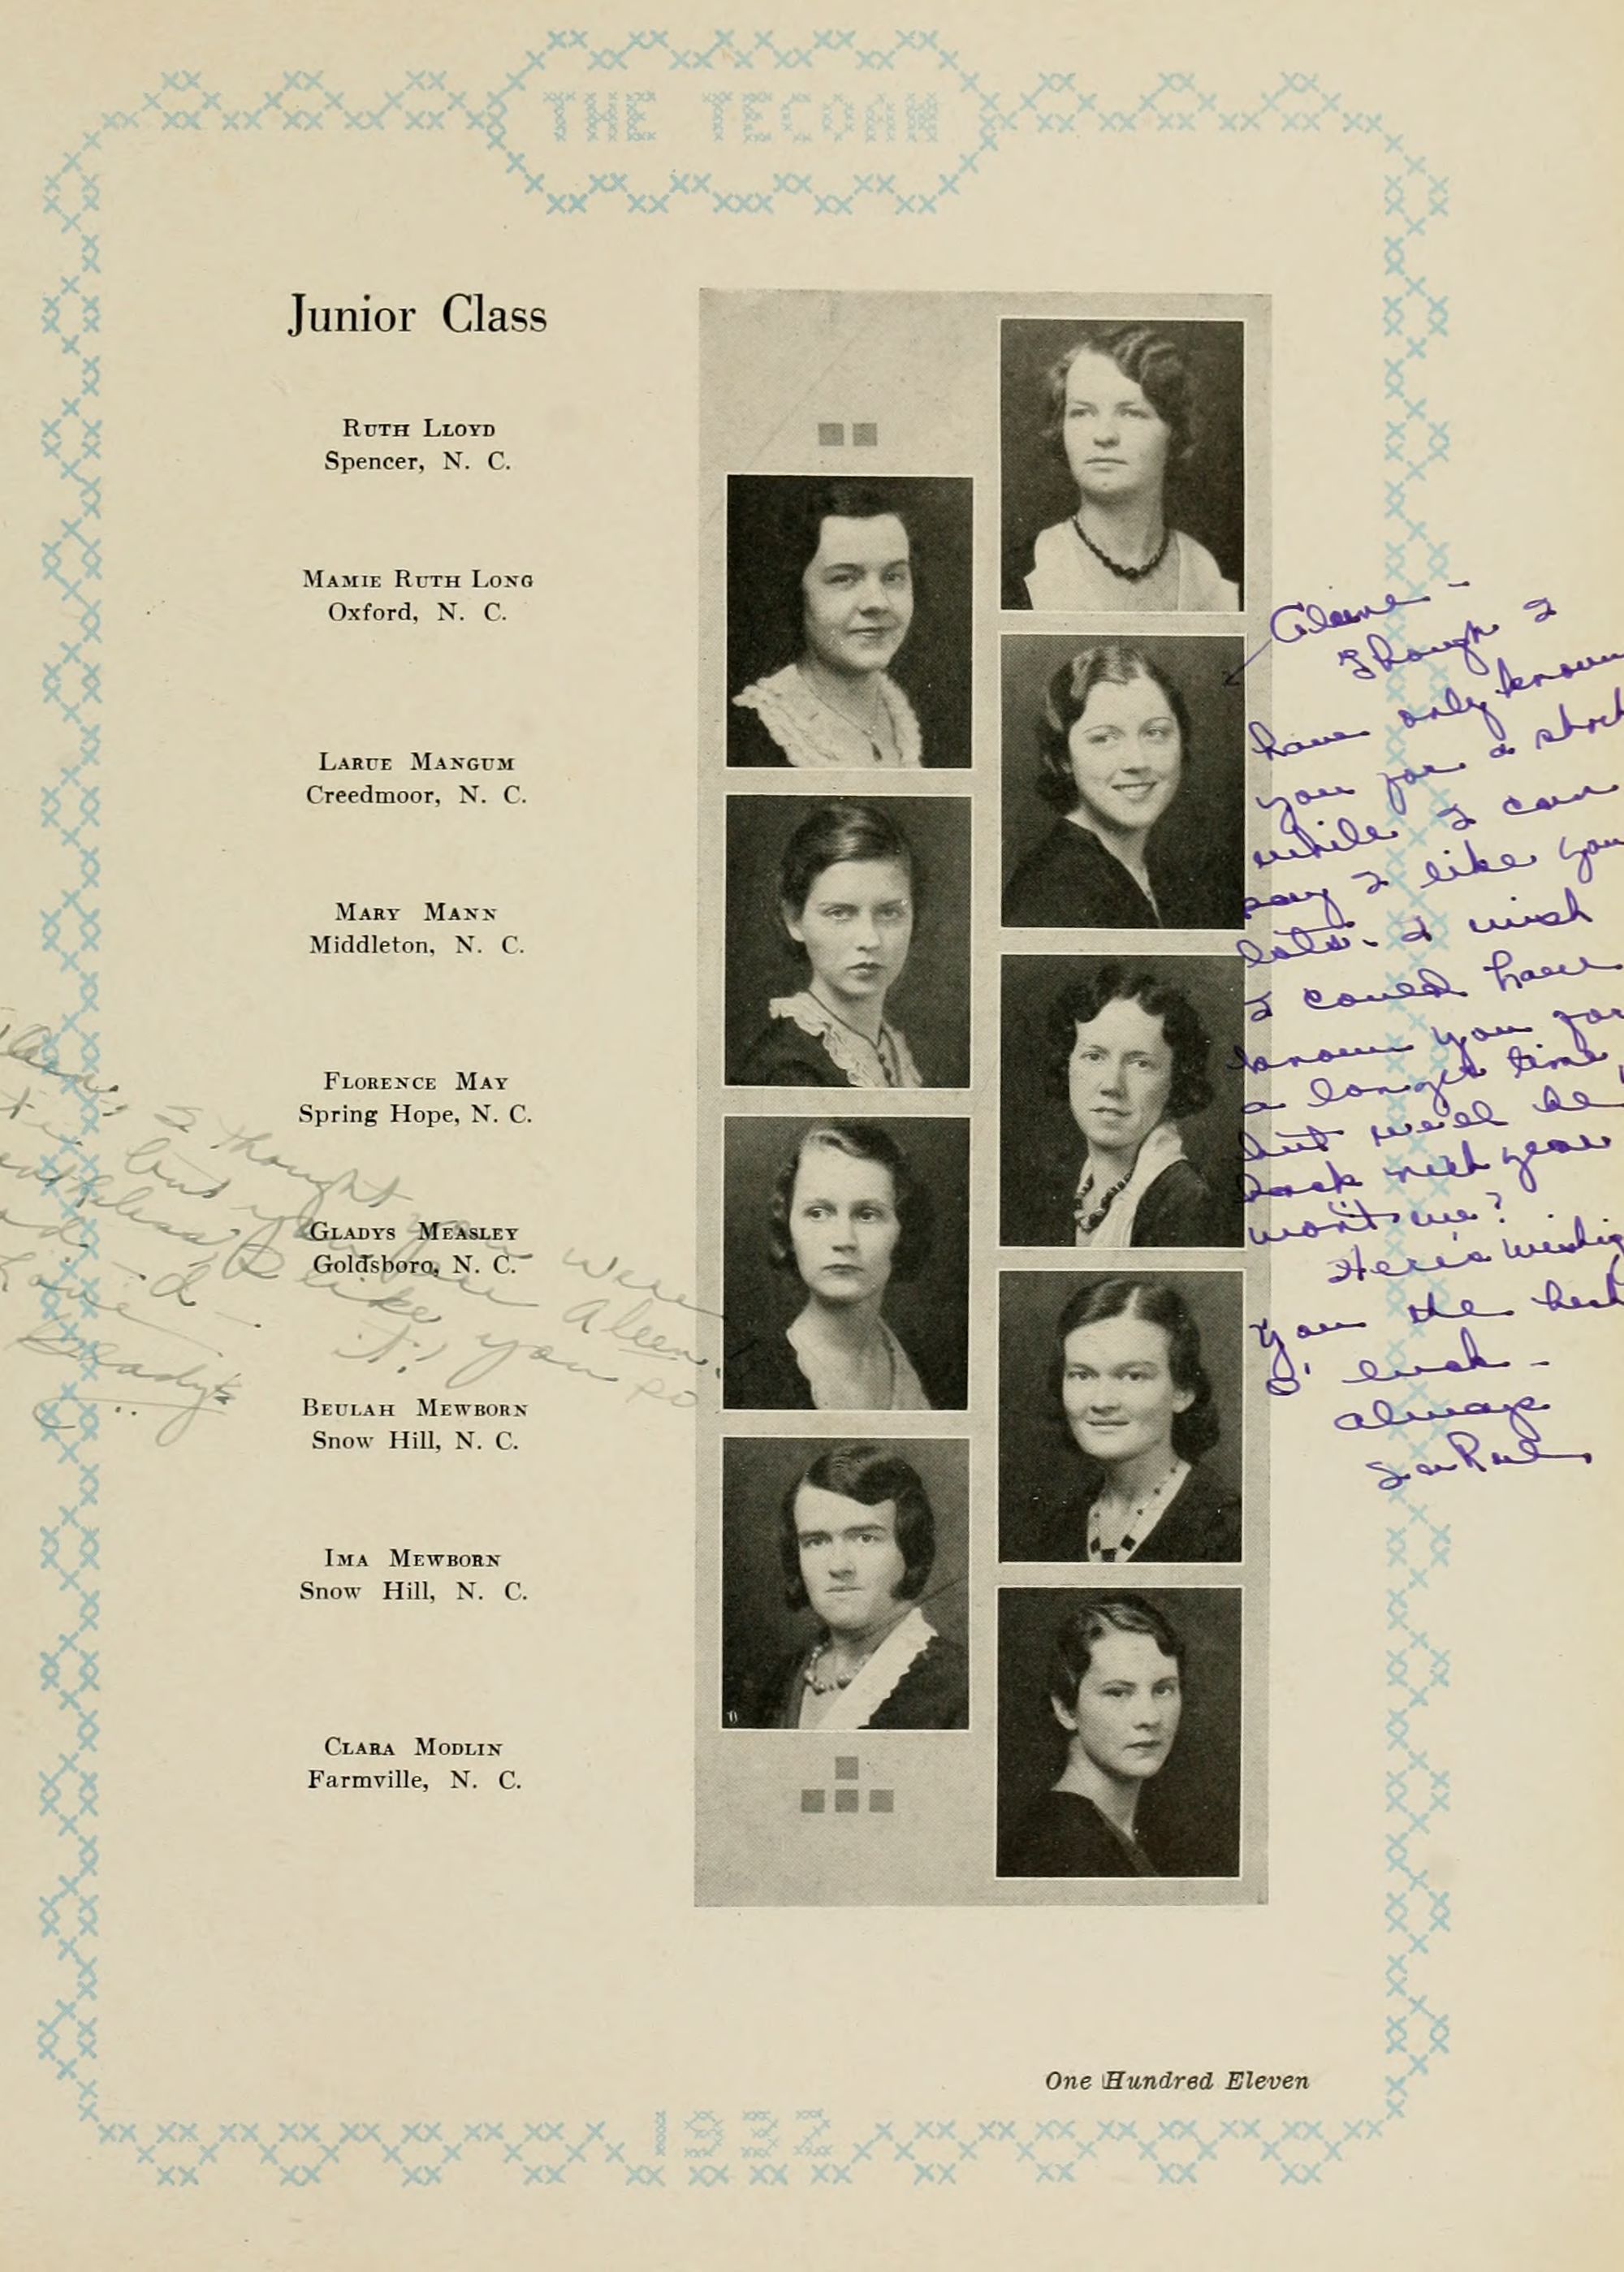 THE TECOAN
Junior Class
RUTH LLOYD
Spencer, N. C.
MAMIE RUTH LONG
Oxford, N. C.
LARUE MANGUM
Creedmoor, N. C.
MARY MANN
Middleton, N. C.
FLORENCE MAY
Spring Hope, N. C.
GLADYS MEASLEY
Goldsboro, N. C.
BEULAH MEWBORN
Snow Hill, N. C.
IMA MEWBORN
Snow Hill, N. C.
CLARA MODLIN
Farmville, N. C.
I thought you were
like you so
Love
Gladys
Though I
have only known
you for a short
while I can
say I like you
lots. I wish
I could have
known you for
a longer time,
but we'll be
back next year
won't we?
Here's wishing
you the best
o' luck -
Always
LaRue
One Hundred Eleven
1932